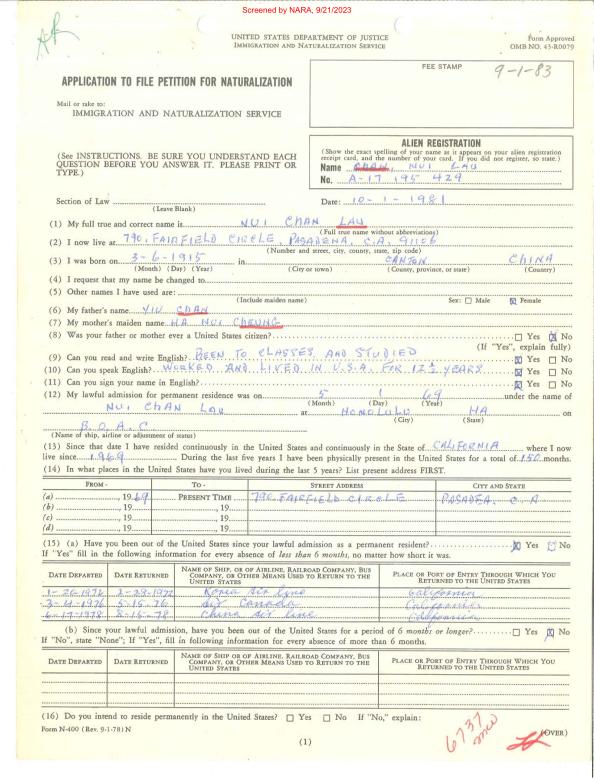 Screened by NARA, 9/21/2023
AR
UNITED STATES DEPARTMENT OF JUSTICE
IMMIGRATION AND NATURALIZATION SERVICE
Form Approved
OMB NO. 43-R0079
FEE STAMP
9-1-83
APPLICATION TO FILE PETITION FOR NATURALIZATION
Mail or take to:
IMMIGRATION AND NATURALIZATION SERVICE
(See INSTRUCTIONS. BE SURE YOU UNDERSTAND EACH
QUESTION BEFORE YOU ANSWER IT. PLEASE PRINT OR
TYPE.)
ALIEN REGISTRATION
(Show the exact spelling of your name as it appears on your alien registration
receipt card, and the number of your card. If you did not register, so state.)
Name CHAN, NUI LAU
No. A-17 195 429
Section of Law
(Leave Blank)
Date: 10-1-1981
(1) My full true and correct name is NUI CHAN LAU
(Full true name without abbreviations)
(2) I now live at 790, FAIRFIELD CIRCLE, PASADENA, C.A. 91106
(Number and street, city, county, state, zip code)
(3) I was born on 3-6-1915 in CANTON CHINA
(Month) (Day) (Year) (City or town) (County, province, or state) (Country)
(4) I request that my name be changed to
(5) Other names I have used are:
(Include maiden name) Sex: Male Female
(6) My father's name YIU CHAN
(7) My mother's maiden name HA NUI CHEUNG
(8) Was your father or mother ever a United States citizen? Yes No
(If "Yes", explain fully)
(9) Can you read and write English? BEEN TO CLASSES AND STUDIED Yes No
(10) Can you speak English? WORKED AND LIVED IN U.S.A. FOR 12½ YEARS Yes No
(11) Can you sign your name in English? Yes No
(12) My lawful admission for permanent residence was on 5 1 69 under the name of
(Month) (Day) (Year)
NUI CHAN LAU at HONOLULU HA on
(City) (State)
B.O.A.C
(Name of ship, airline or adjustment of status)
(13) Since that date I have resided continuously in the United States and continuously in the State of CALIFORNIA where I now
live since 1969. During the last five years I have been physically present in the United States for a total of 150 months.
(14) In what places in the United States have you lived during the last 5 years? List present address FIRST.
FROM - TO - STREET ADDRESS CITY AND STATE
(a) , 1969 PRESENT TIME 790 FAIRFIELD CIRCLE PASADEA. C.A
(b) , 19 , 19
(c) , 19 , 19
(d) , 19 , 19
(15) (a) Have you been out of the United States since your lawful admission as a permanent resident? Yes No
If "Yes" fill in the following information for every absence of less than 6 months, no matter how short it was.
DATE DEPARTED DATE RETURNED NAME OF SHIP, OR OF AIRLINE, RAILROAD COMPANY, BUS COMPANY, OR OTHER MEANS USED TO RETURN TO THE UNITED STATES PLACE OR PORT OF ENTRY THROUGH WHICH YOU RETURNED TO THE UNITED STATES
1-26-1972 2-28-1972 Korea Air line California
3-4-1976 5-15-76 Air Canada California
6-17-1978 8-15-78 China Air line California
(b) Since your lawful admission, have you been out of the United States for a period of 6 months or longer? Yes No
If "No", state "None"; If "Yes", fill in following information for every absence of more than 6 months.
DATE DEPARTED DATE RETURNED NAME OF SHIP OR OF AIRLINE, RAILROAD COMPANY, BUS COMPANY, OR OTHER MEANS USED TO RETURN TO THE UNITED STATES PLACE OR PORT OF ENTRY THROUGH WHICH YOU RETURNED TO THE UNITED STATES
(16) Do you intend to reside permanently in the United States? Yes No If "No," explain:
Form N-400 (Rev. 9-1-78) N
(1)
6737
(OVER)